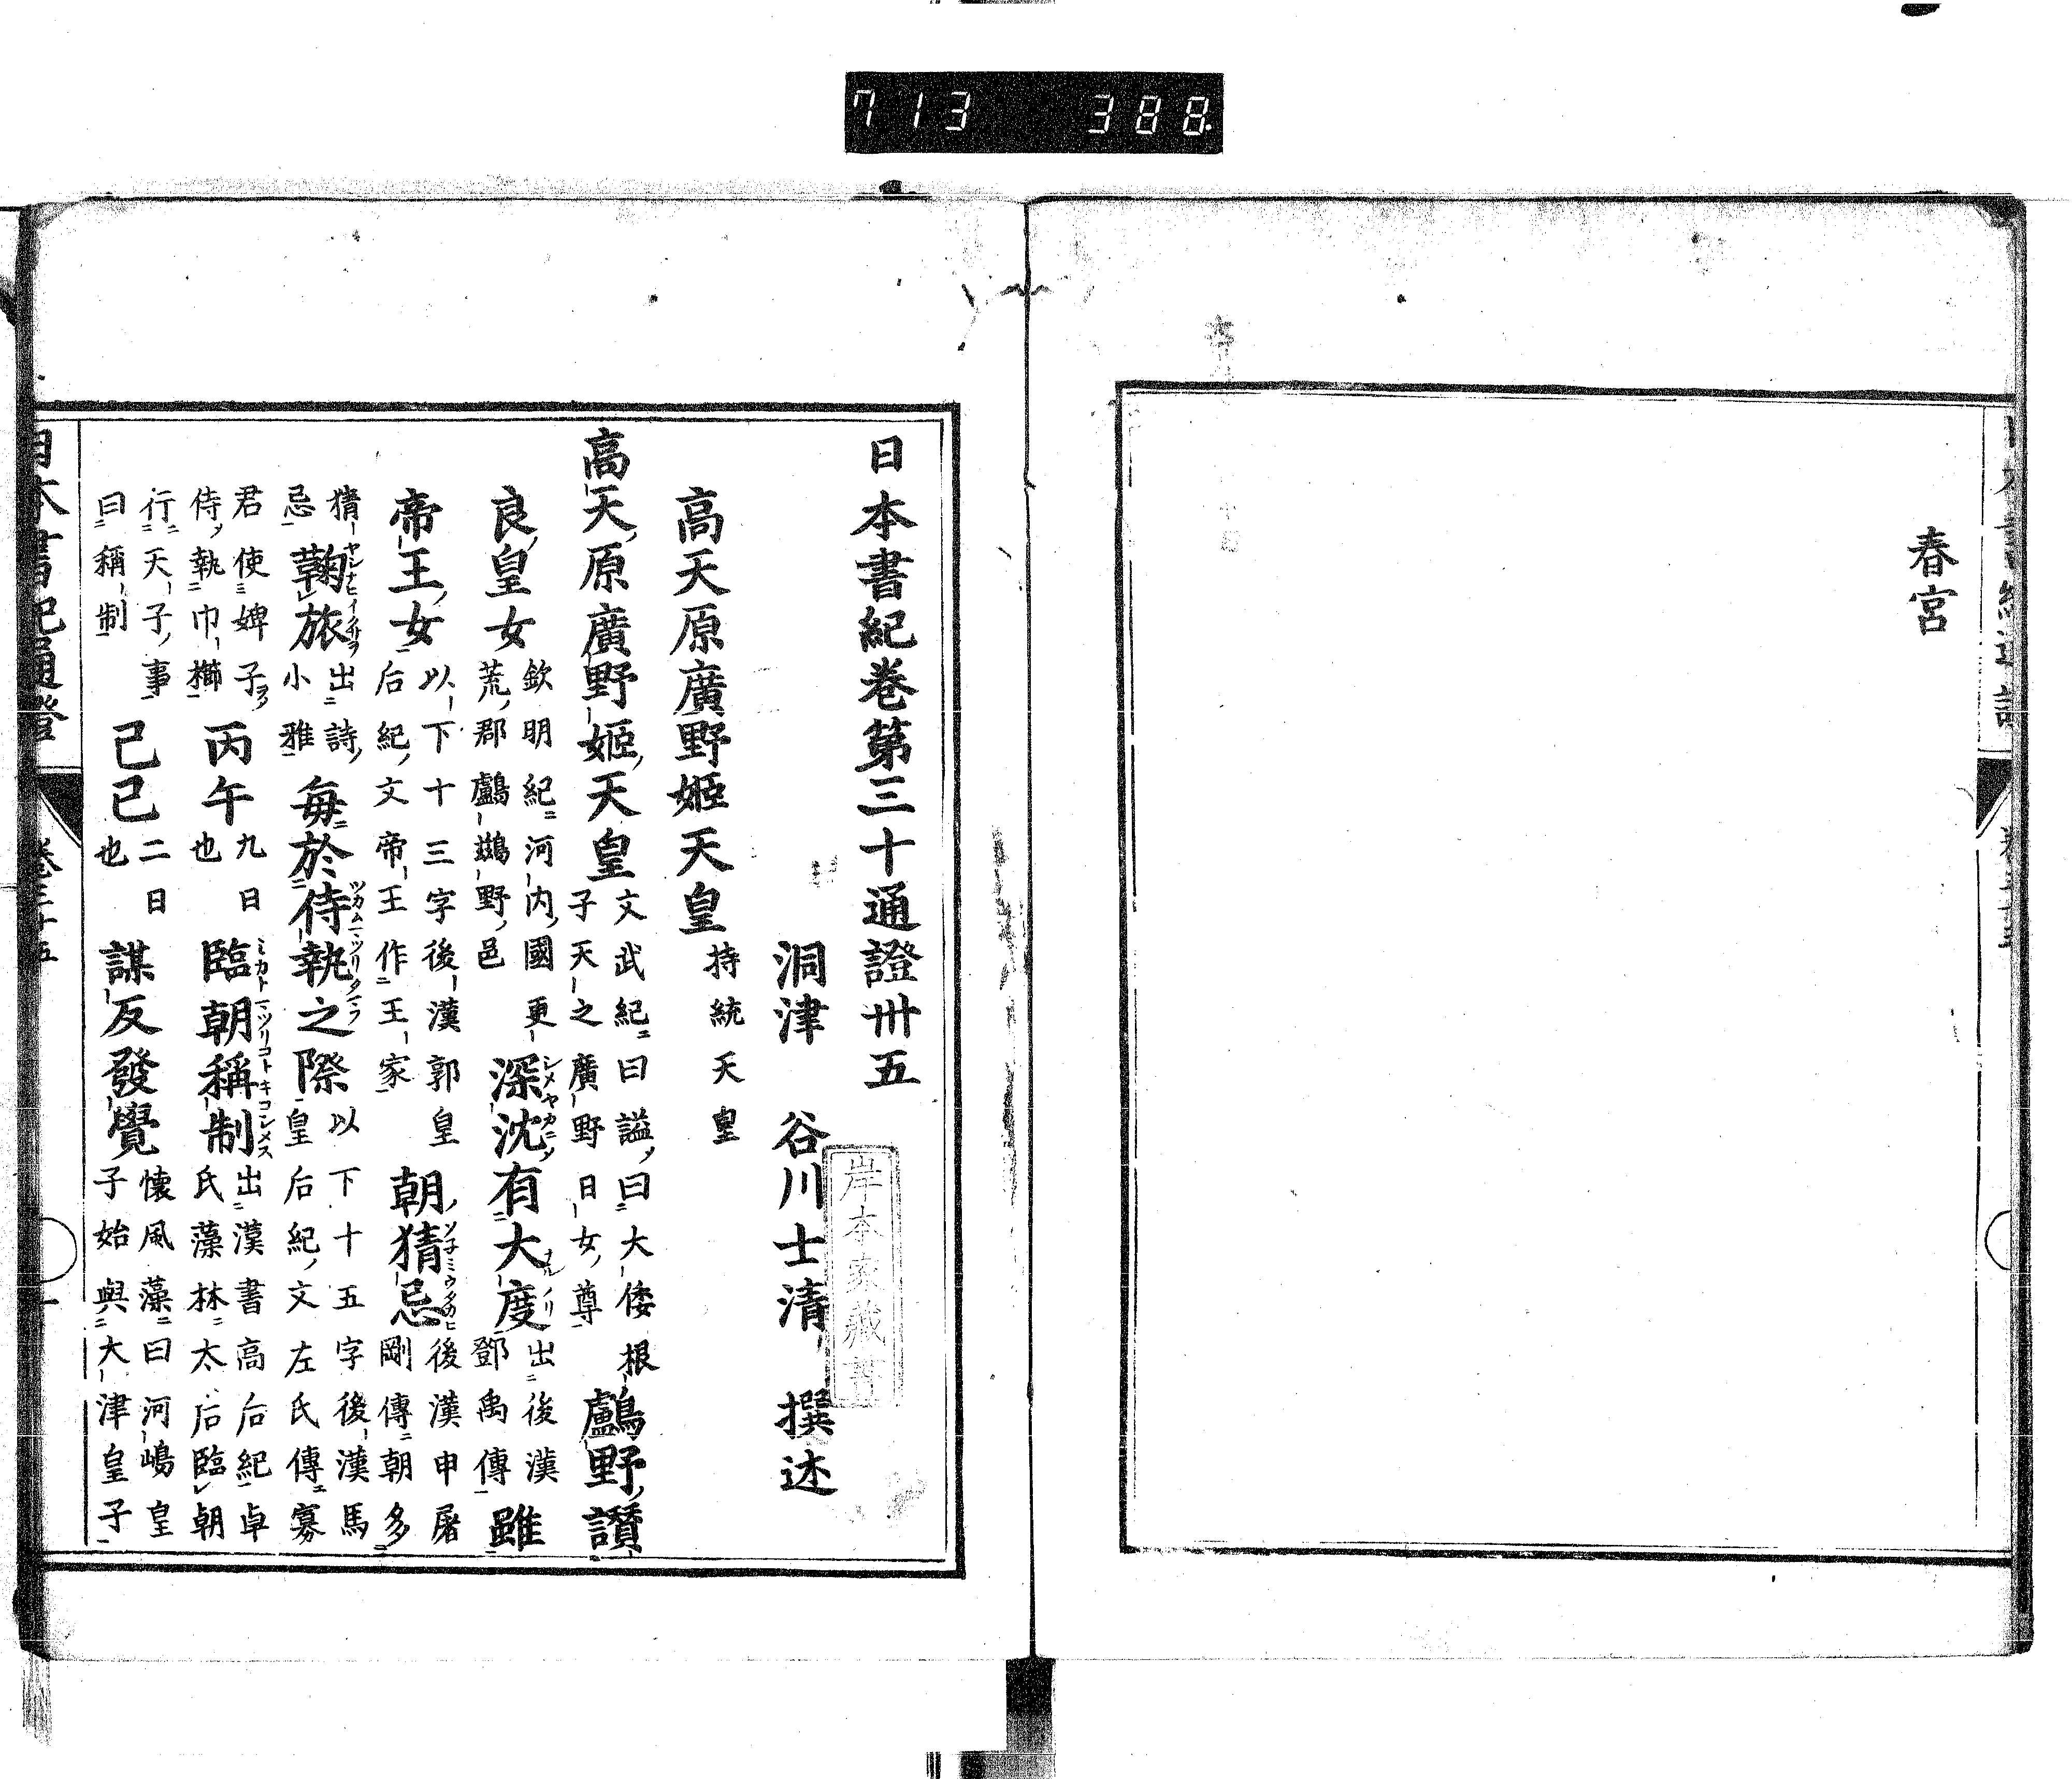 713 388.
春宮
日本書紀卷第三十通證卅五
洞津 谷川士清 撰述
岸本家藏書
高天原廣野姬天皇 持統天皇
高天原廣野姬天皇 文武紀曰謚曰大倭根子天之廣野日女尊 鸕野讚
良皇女 欽明紀河内國更荒郡鸕鷀野邑 深沈有大度 出後漢鄧禹傳 雖
帝王女 以下十三字後漢郭皇后紀文帝王作王家 朝猜忌 後漢申屠剛傳朝多
猜忌 鞠旅 出詩小雅 每於侍執之際 以下十五字後漢馬皇后紀文左氏傳寡
君使婢子侍執巾櫛 丙午 九日也 臨朝稱制 出漢書高后紀卓氏藻林太后臨朝
行天子事曰稱制 己巳 二日也 謀反發覺 懷風藻曰河嶋皇子始與大津皇子
日本書紀通證 卷三十五 一